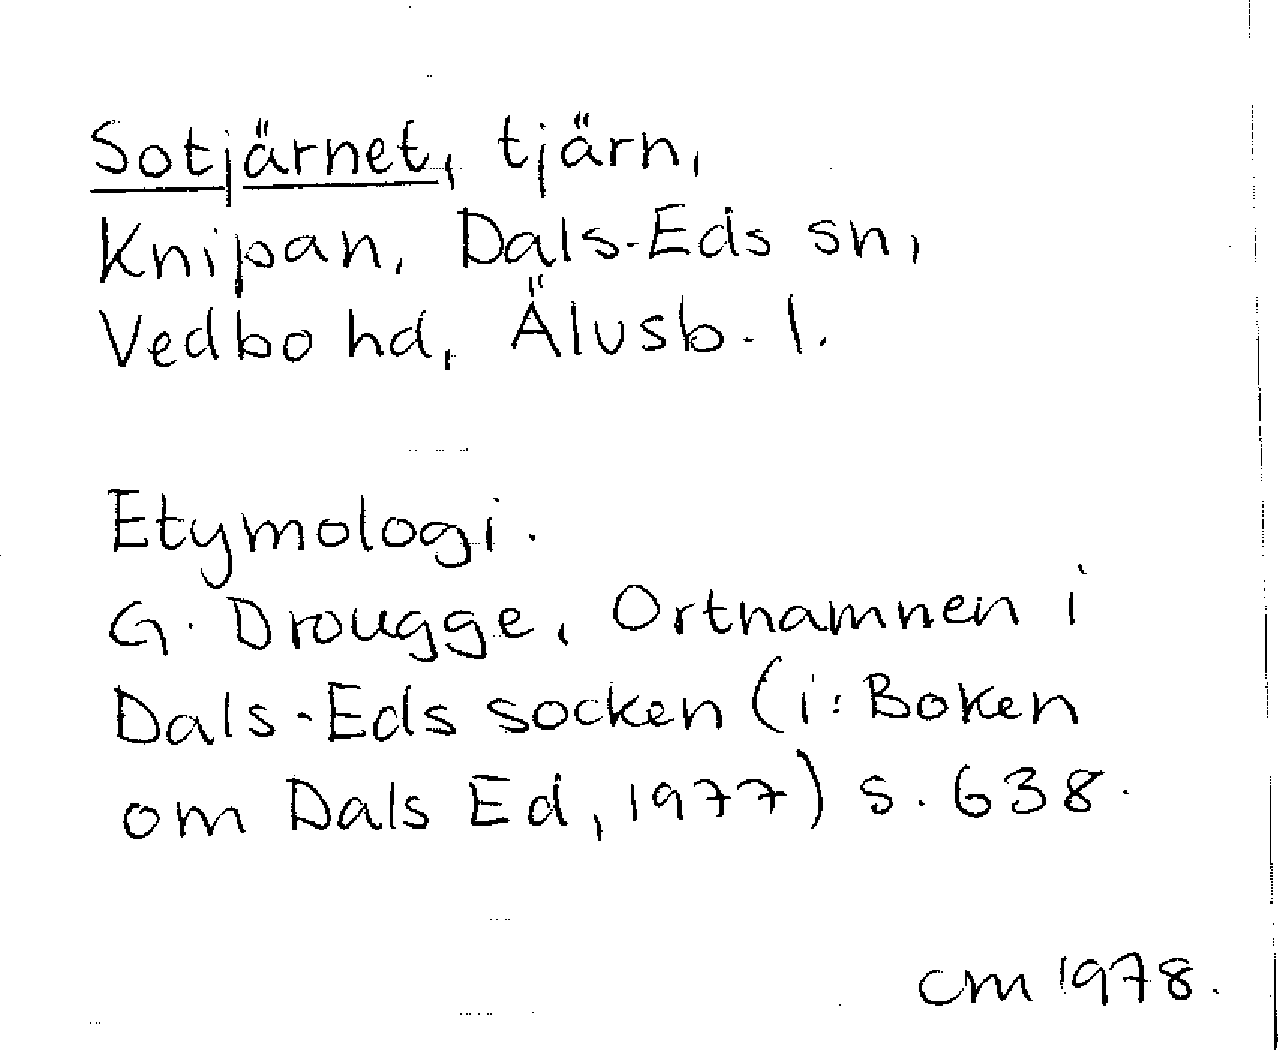 Sotjärnet, tjärn,
Knipan, Dals-Eds sn,
Vedbo hd, Älvsb. l.
Etymologi.
G. Drougge, Ortnamnen i
Dals-Eds socken (i: Boken
om Dals Ed, 1977) s. 638.
cm 1978.